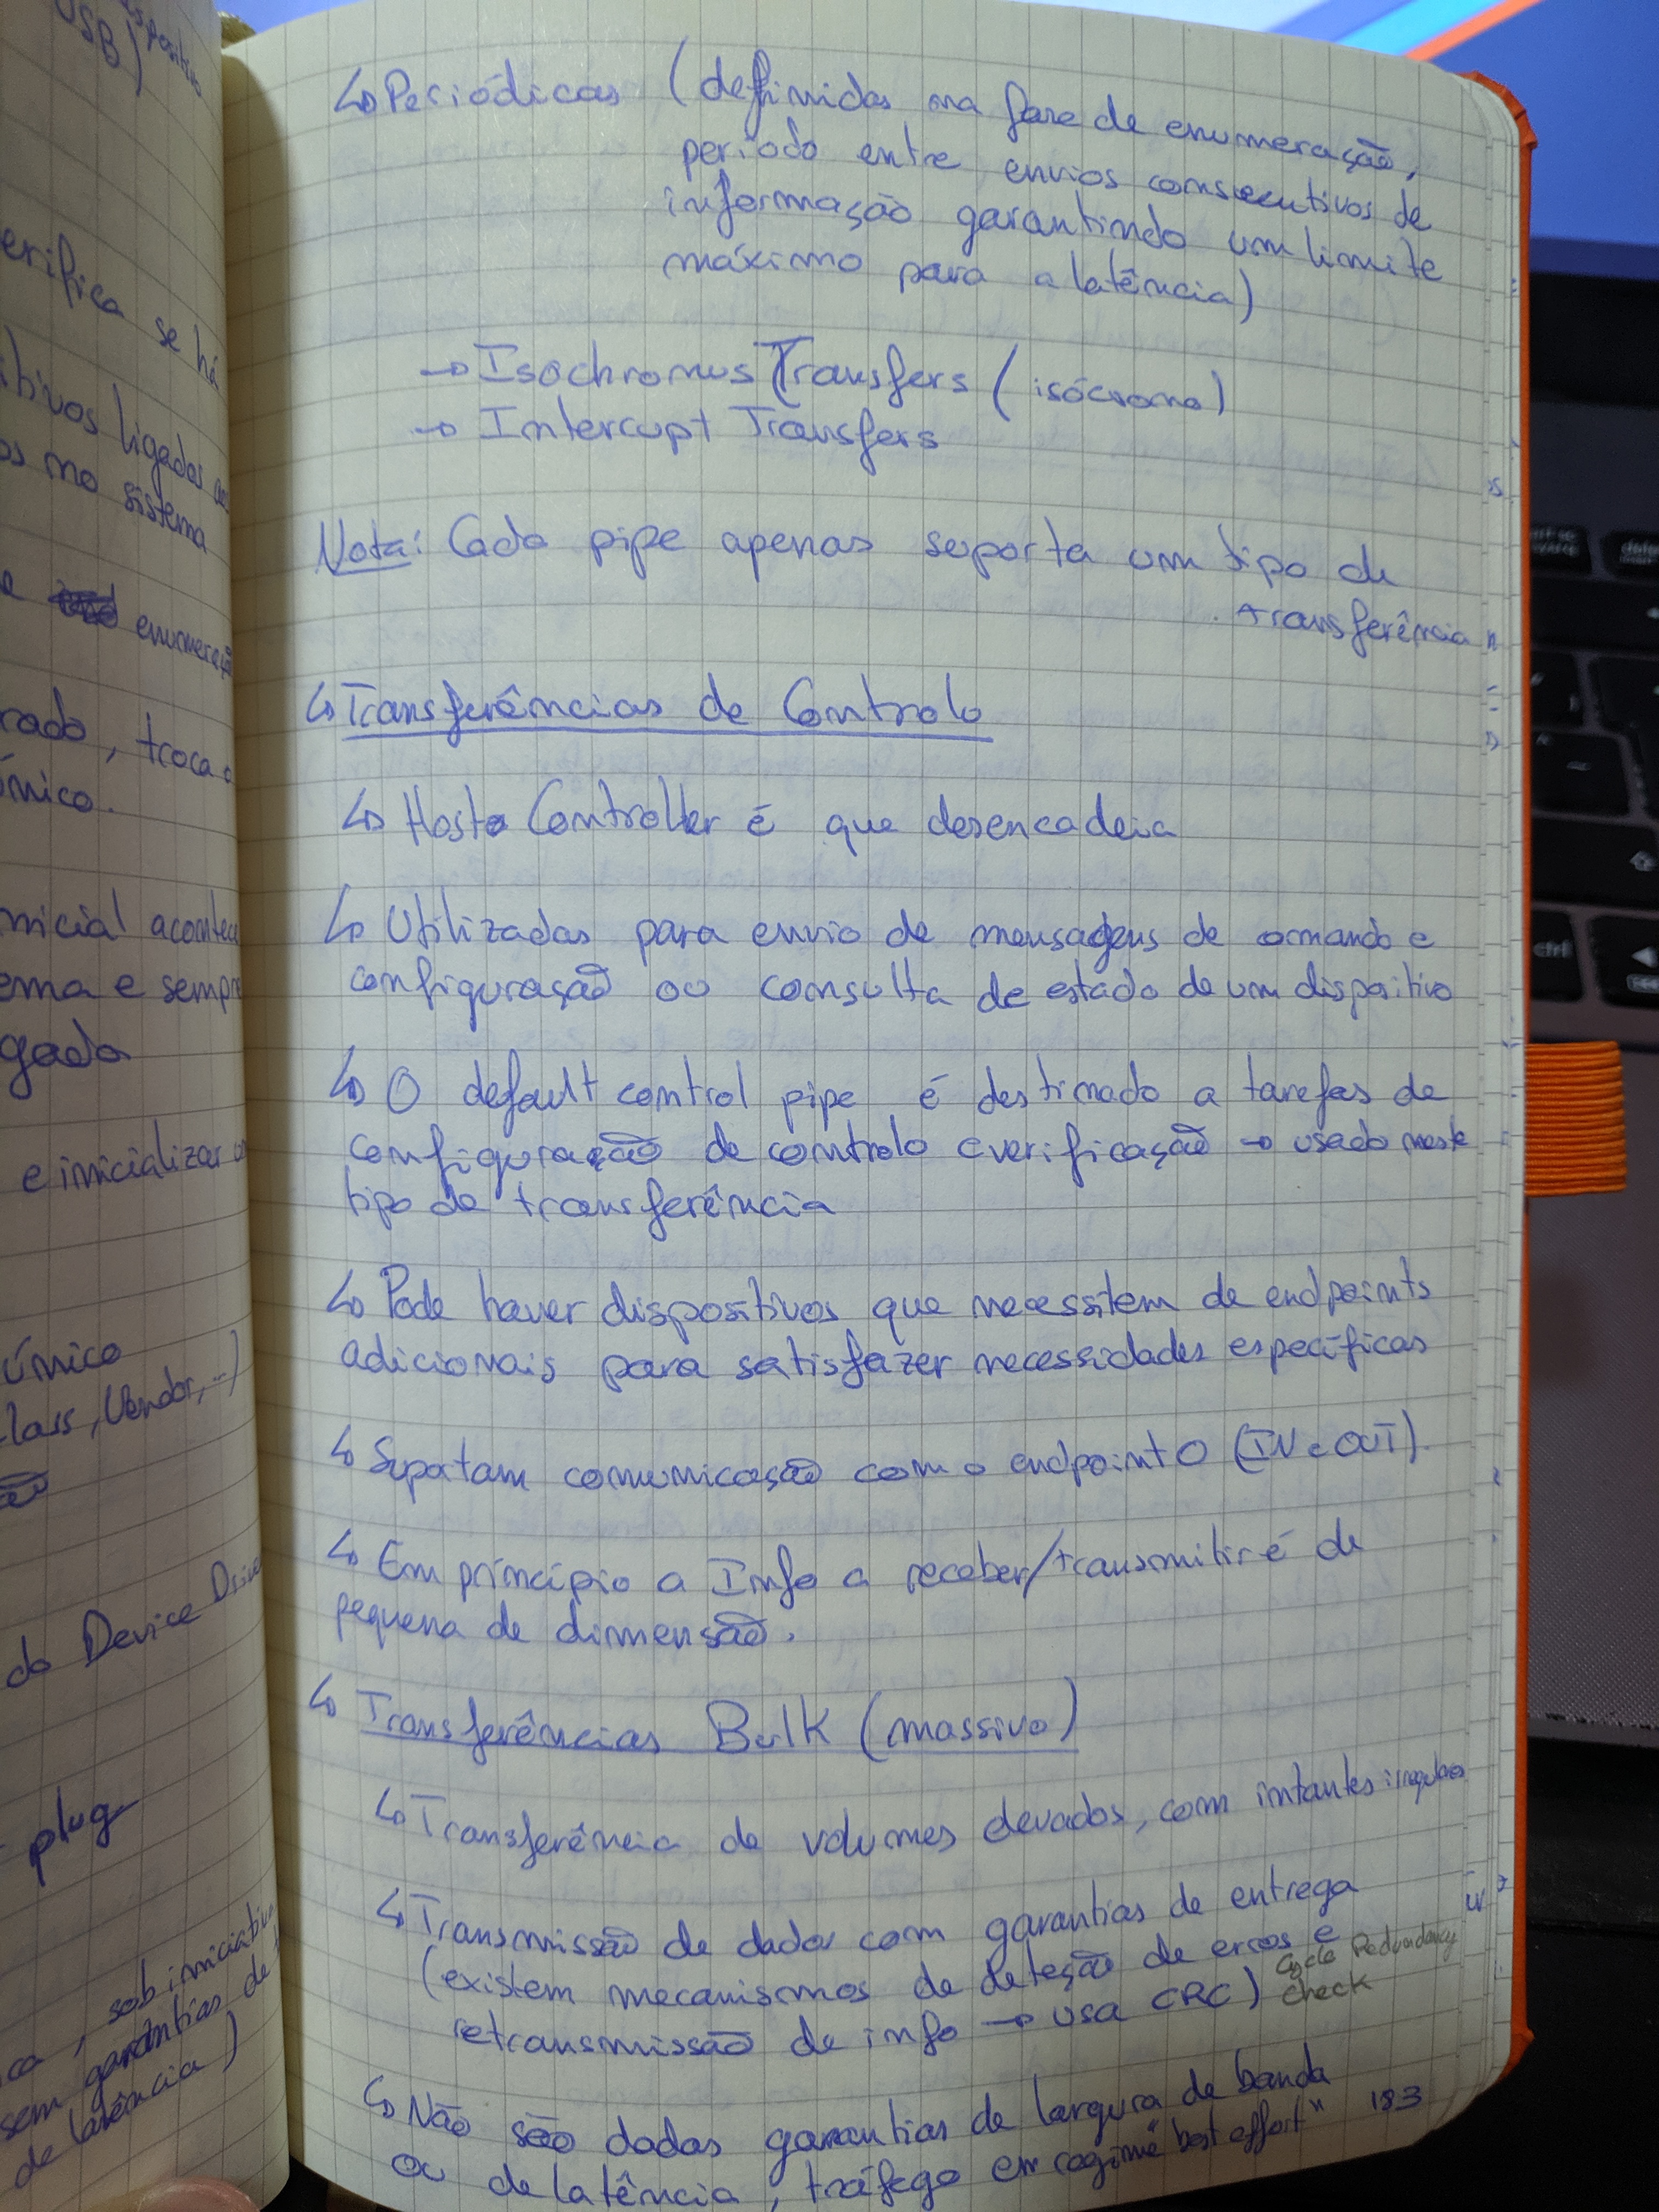 USB)
erifica se há
itivos ligados ao
os no sistema
e enumeração
rado, troca o
único.
inicial acontece
ema e sempre
gado
e inicializar
único
class, (Vendor, ...)
do Device Driver
plug
ca, sob iniciativa
sem garantias de
de latência)
↳ Periódicas (definidas na fase de enumeração,
período entre envios consecutivos de
informação garantindo um limite
máximo para a latência)
→ Isochronus Transfers (isócrono)
→ Interrupt Transfers
Nota: Cada pipe apenas suporta um tipo de
transferência
↳ Transferências de Controlo
↳ Host Controller é que desencadeia
↳ Utilizadas para envio de mensagens de comando e
configuração ou consulta de estado de um dispositivo
↳ O default control pipe é destinado a tarefas de
configuração de controlo e verificação → usado neste
tipo de transferência
↳ Pode haver dispositivos que necessitem de endpoints
adicionais para satisfazer necessidades específicas
↳ Supotam comunicação com o endpoint 0 (IN e OUT).
↳ Em princípio a Info a receber/transmitir é de
pequena de dimensão.
↳ Transferências Bulk (massivo)
↳ Transferência de volumes elevados, com intantes irregulares
↳ Transmissão de dados com garantias de entrega
(existem mecanismos de deteção de erros e
retransmissão de info → usa CRC) Cycle Redundancy
check
↳ Não são dadas garantias de largura de banda
ou de latência, tráfego em regime "best effort" 183
ctrl